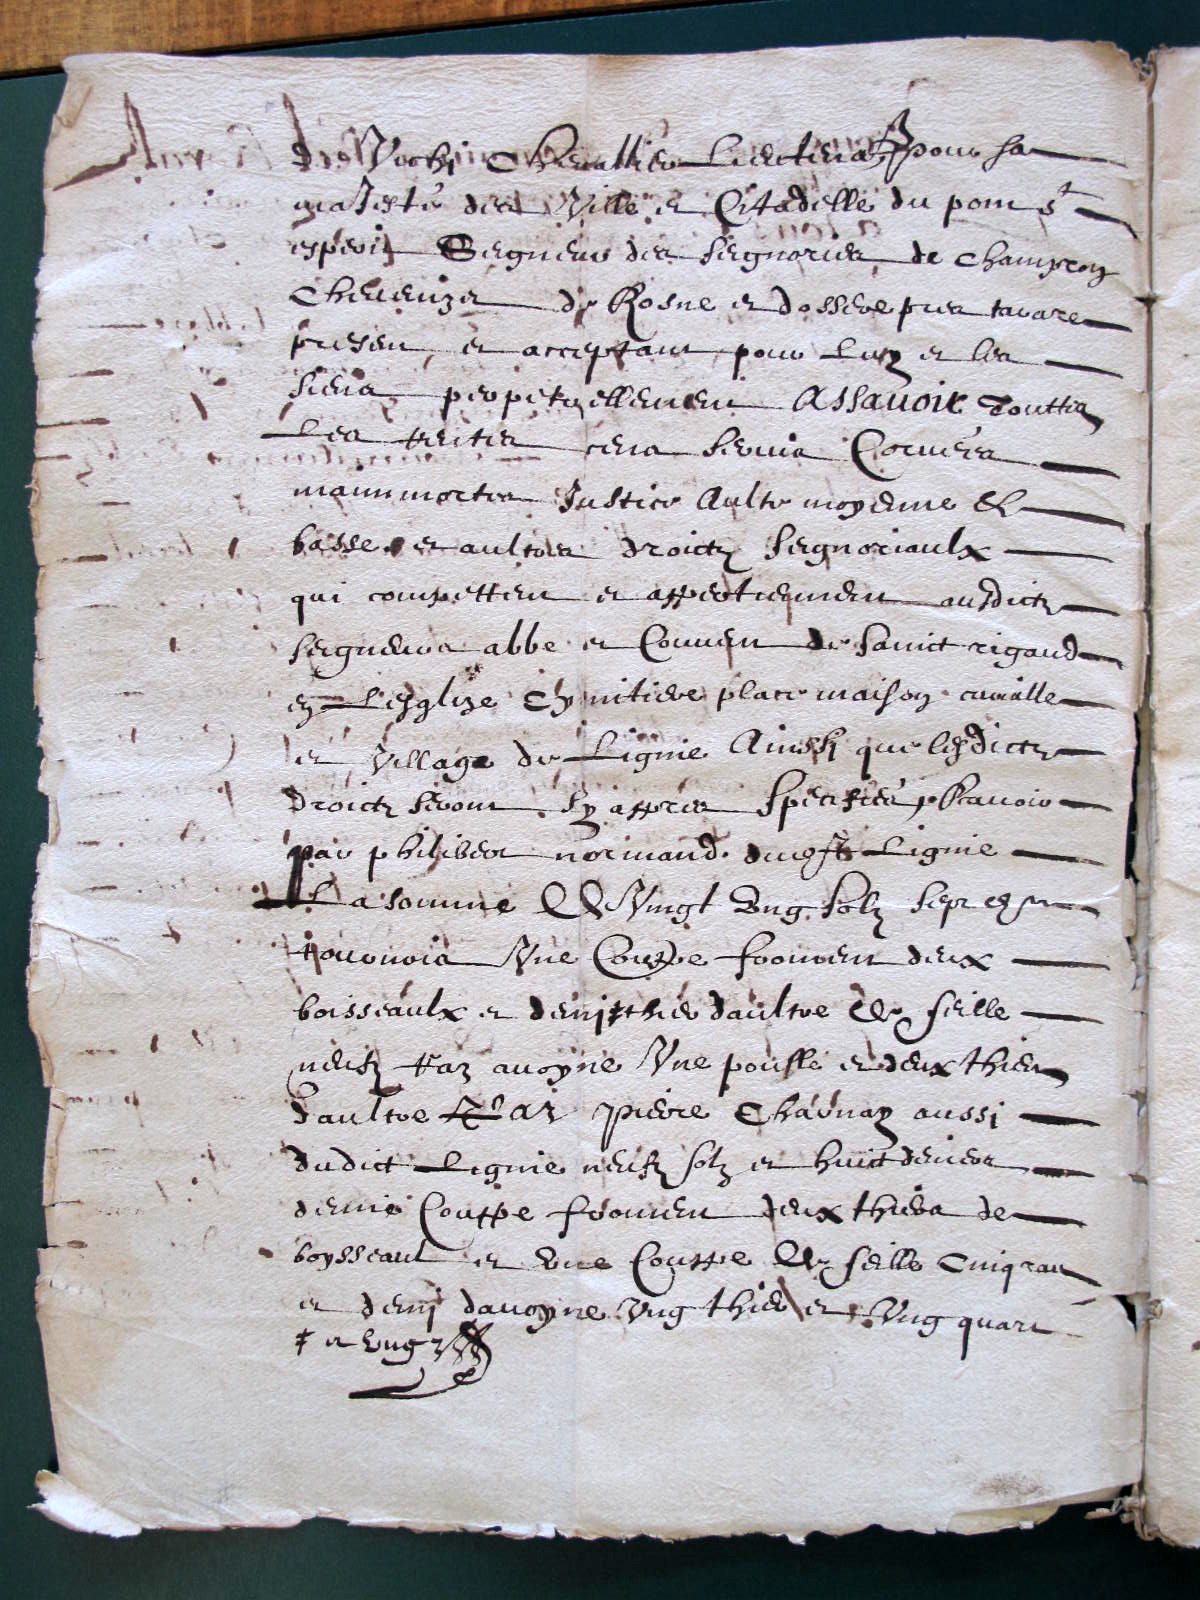 de Vichi Chevallier Lieutena pour sa
maJesté des Ville et Citadelle du pont st
esperit Seigneur des seignories de Champron
Chevenizet de Rosne et dossere pres tavare
present et acceptant pour Luy et les
siens perpetuellement Assavoir touttes
Les rentes cens servis Corvées
mainmortes Justice Aulte moyenne &
basse et aultres droictz seignoriaulx
qui competent et appertiennent ausdictz
seigneurs abbe et Couvent de sainct rigaud
en Lesglize Cymitiere place maison curialle
et village de Lignie Ainssi que lesdictz
droictz seront sy appres speciffiés scavoir
par philibert normand dudict Lignie
La somme de Vingt Ung solz sept
tournois Une Couppe froment deux
boisseaulx et demi ‡ thier daultre de seille
neufz raz avoyne Une poulle et deux thier
daultre raz pierre Chavnay aussi
dudict Lignie neufz solz et huict deniers
demie Couppe froment deux thiers de
boysseaul et une Couppe de seille Cinq raz
et demi davoyne Ung thier et Ung quart
‡ et ung